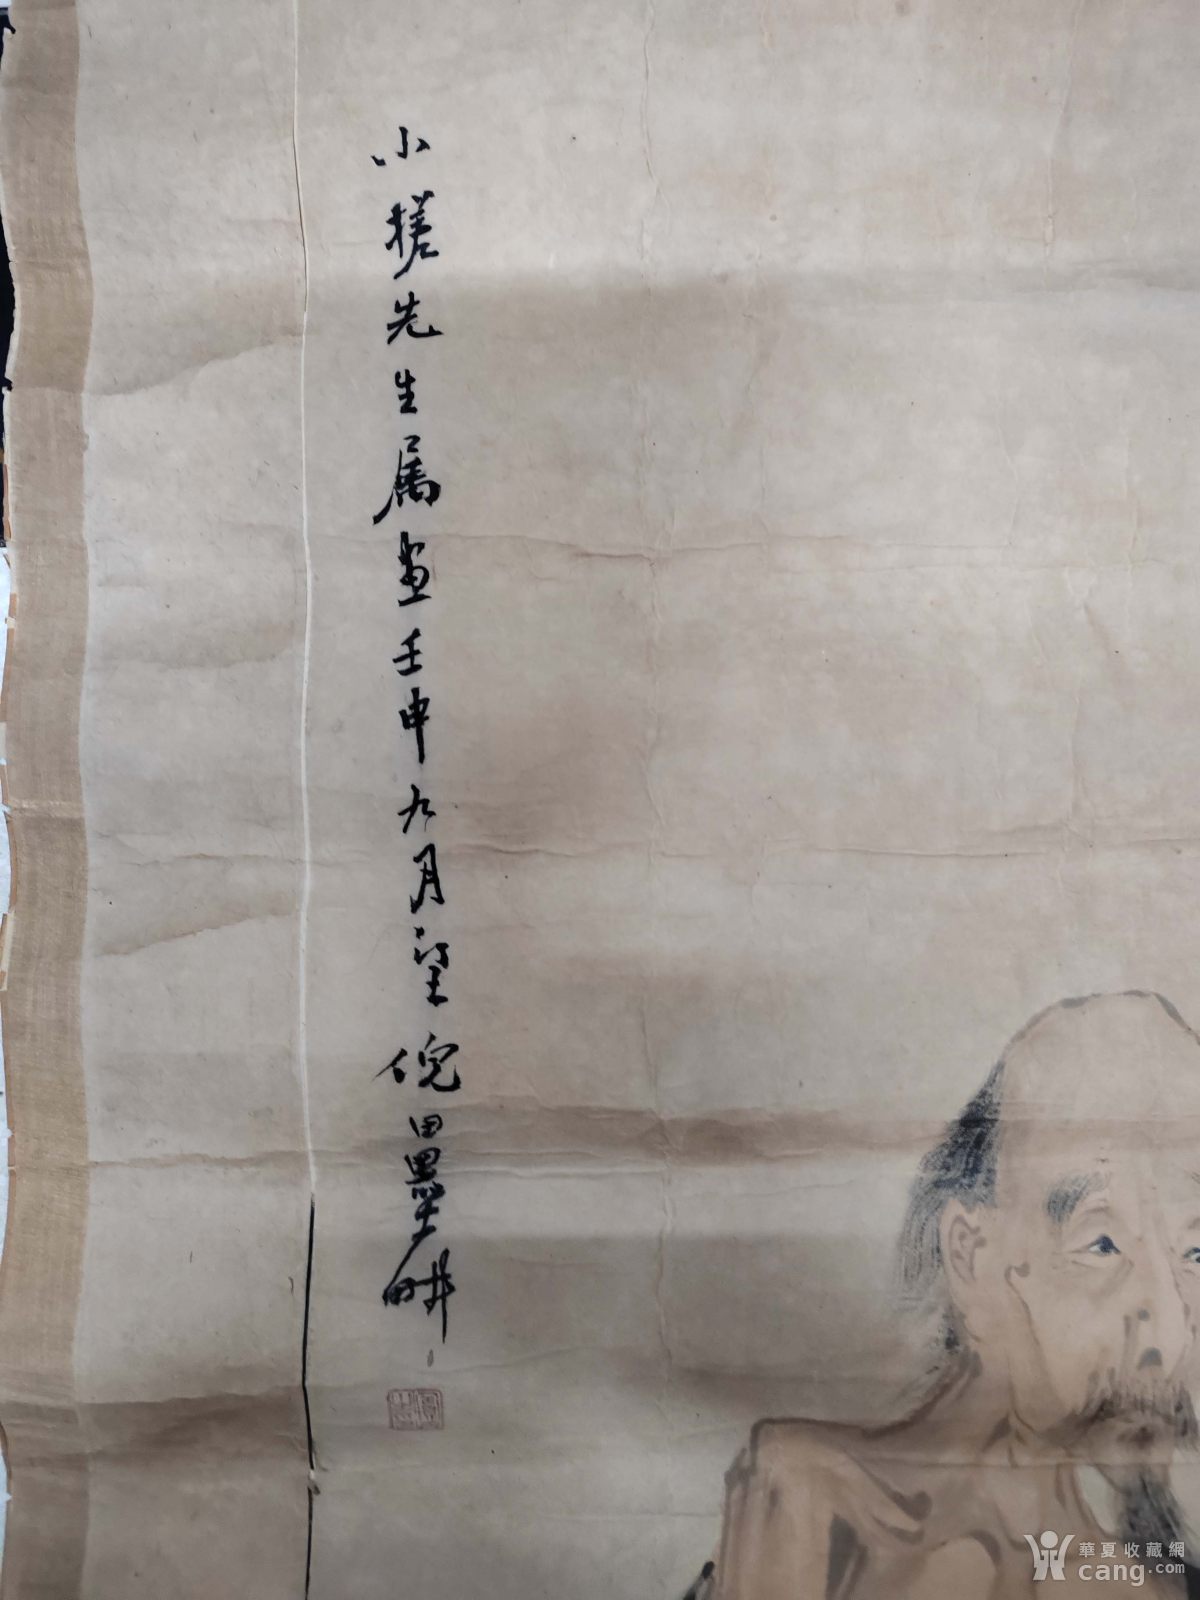 小槎先生属画壬申九月望倪田墨畊
華夏收藏網
cang.com